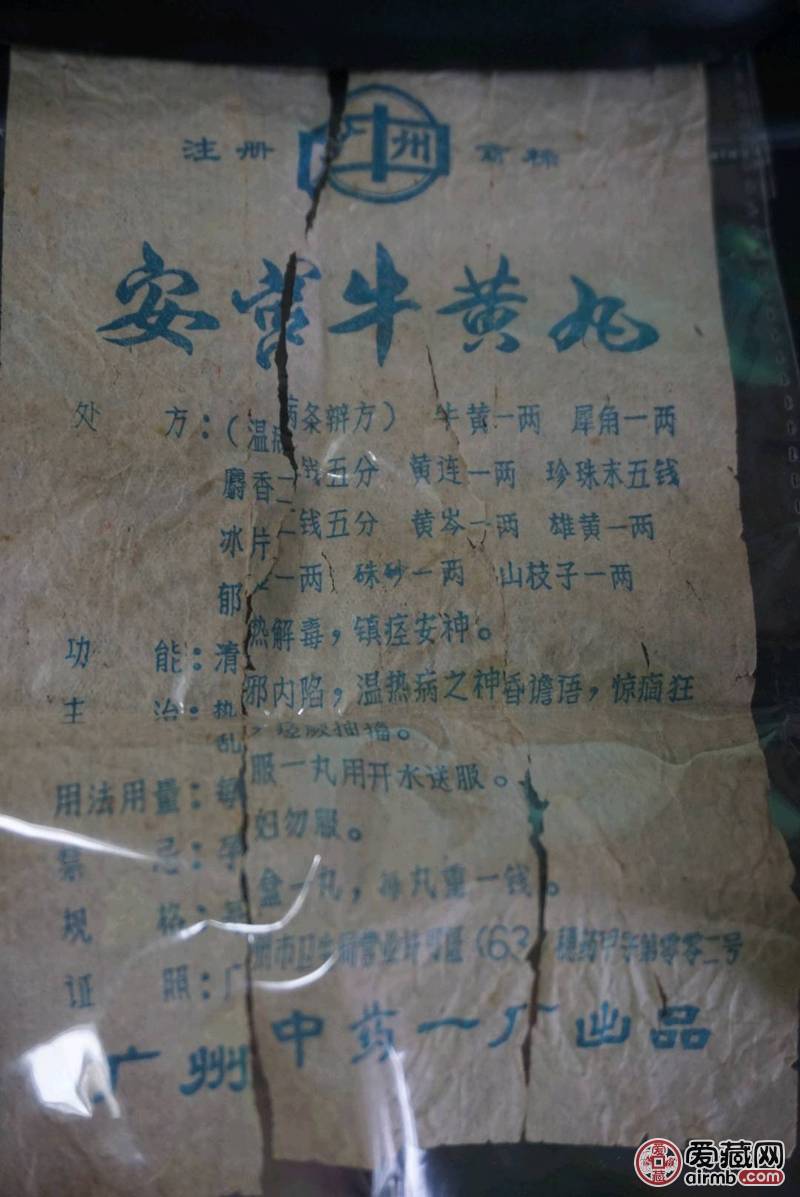 注册 广州 商标
安宫牛黄丸
处方：（温病条辨方） 牛黄一两 犀角一两
麝香二钱五分 黄连一两 珍珠末五钱
冰片二钱五分 黄岑一两 雄黄一两
郁 一两 硃砂一两 山枝子一两
功能：清热解毒，镇痉安神。
主治：热邪内陷，温热病之神昏谵语，惊痫狂
乱，痉厥抽搐。
用法用量：每服一丸用开水送服。
禁忌：孕妇勿服。
规格：每盒一丸，每丸重一钱。
证照：广州市卫生局营业许可证（63）穗药甲字第零零二号
广州中药一厂出品
爱藏网
airmb.com